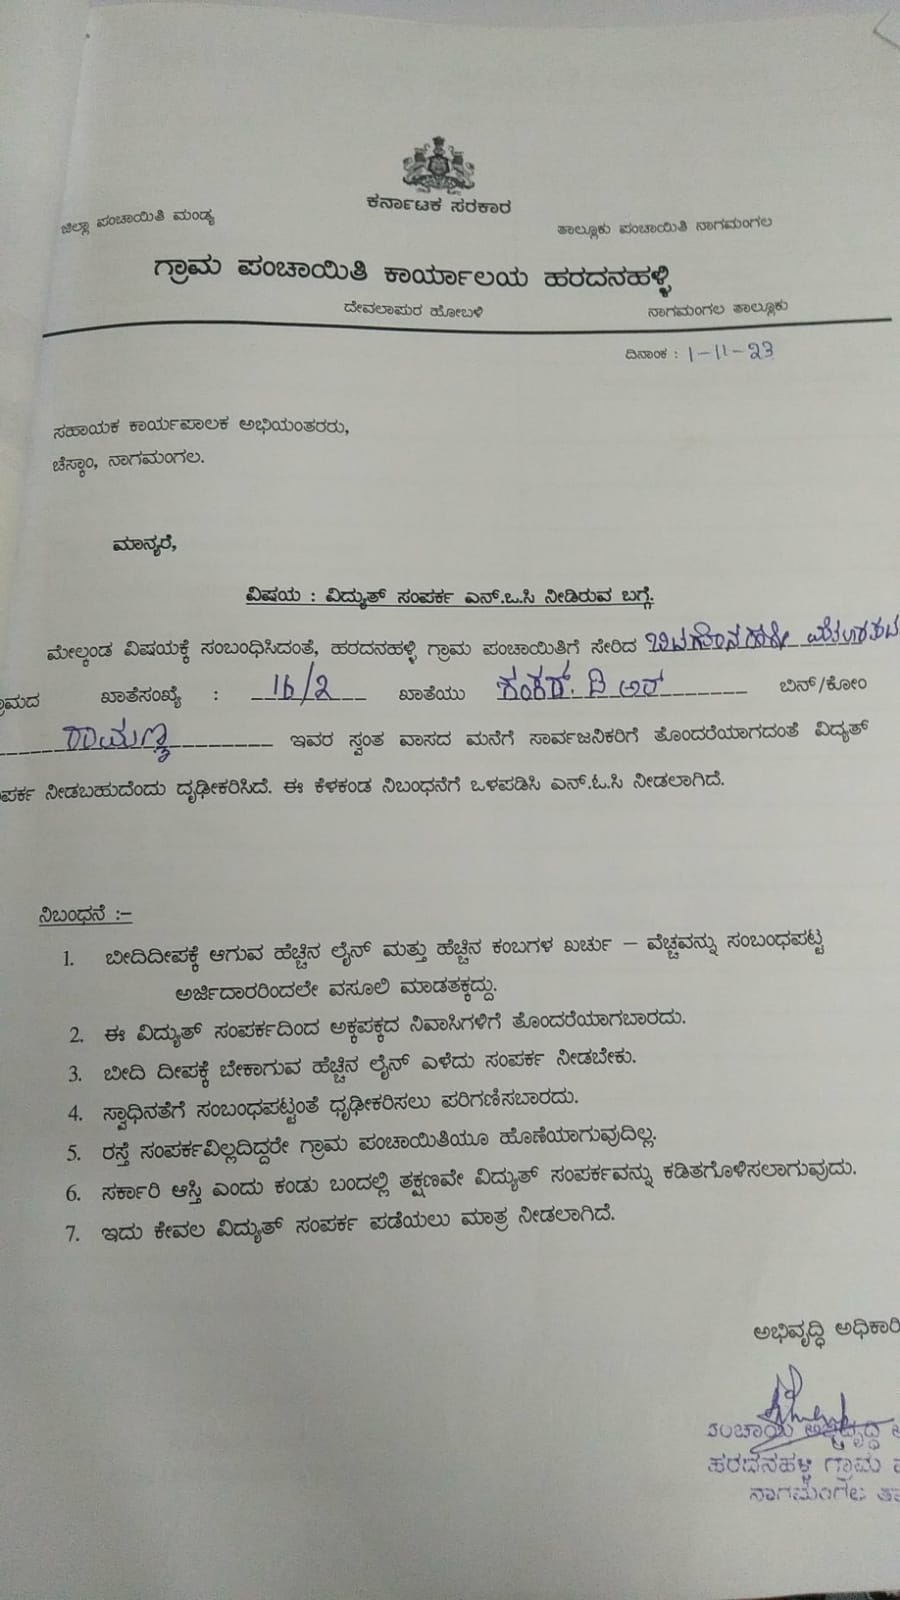 ಕರ್ನಾಟಕ ಸರಕಾರ
ಜಿಲ್ಲಾ ಪಂಚಾಯಿತಿ ಮಂಡ್ಯ ತಾಲ್ಲೂಕು ಪಂಚಾಯಿತಿ ನಾಗಮಂಗಲ
ಗ್ರಾಮ ಪಂಚಾಯಿತಿ ಕಾರ್ಯಾಲಯ ಹರದನಹಳ್ಳಿ
ದೇವಲಾಪುರ ಹೋಬಳಿ ನಾಗಮಂಗಲ ತಾಲ್ಲೂಕು
ದಿನಾಂಕ : 1-11-23
ಸಹಾಯಕ ಕಾರ್ಯಪಾಲಕ ಅಭಿಯಂತರರು,
ಚೆಸ್ಕಾಂ, ನಾಗಮಂಗಲ.
ಮಾನ್ಯರೆ,
ವಿಷಯ : ವಿದ್ಯುತ್ ಸಂಪರ್ಕ ಎನ್.ಒ.ಸಿ ನೀಡಿರುವ ಬಗ್ಗೆ.
ಮೇಲ್ಕಂಡ ವಿಷಯಕ್ಕೆ ಸಂಬಂಧಿಸಿದಂತೆ, ಹರದನಹಳ್ಳಿ ಗ್ರಾಮ ಪಂಚಾಯಿತಿಗೆ ಸೇರಿದ
ಖಾತೆಸಂಖ್ಯೆ : 16/2 ಖಾತೆಯು ಶಂಕರ್. ಡಿ ಆರ್ ಬಿನ್/ಕೋಂ
ರಾಮಣ್ಣ ಇವರ ಸ್ವಂತ ವಾಸದ ಮನೆಗೆ ಸಾರ್ವಜನಿಕರಿಗೆ ತೊಂದರೆಯಾಗದಂತೆ ವಿದ್ಯತ್
ನೀಡಬಹುದೆಂದು ದೃಢೀಕರಿಸಿದೆ. ಈ ಕೆಳಕಂಡ ನಿಬಂಧನೆಗೆ ಒಳಪಡಿಸಿ ಎನ್.ಓ.ಸಿ ನೀಡಲಾಗಿದೆ.
ನಿಬಂಧನೆ :–
1. ಬೀದಿದೀಪಕ್ಕೆ ಆಗುವ ಹೆಚ್ಚಿನ ಲೈನ್ ಮತ್ತು ಹೆಚ್ಚಿನ ಕಂಬಗಳ ಖರ್ಚು – ವೆಚ್ಚವನ್ನು ಸಂಬಂಧಪಟ್ಟ
ಅರ್ಜಿದಾರರಿಂದಲೇ ವಸೂಲಿ ಮಾಡತಕ್ಕದ್ದು.
2. ಈ ವಿದ್ಯುತ್ ಸಂಪರ್ಕದಿಂದ ಅಕ್ಕಪಕ್ಕದ ನಿವಾಸಿಗಳಿಗೆ ತೊಂದರೆಯಾಗಬಾರದು.
3. ಬೀದಿ ದೀಪಕ್ಕೆ ಬೇಕಾಗುವ ಹೆಚ್ಚಿನ ಲೈನ್ ಎಳೆದು ಸಂಪರ್ಕ ನೀಡಬೇಕು.
4. ಸ್ವಾಧಿನತೆಗೆ ಸಂಬಂಧಪಟ್ಟಂತೆ ಧೃಢೀಕರಿಸಲು ಪರಿಗಣಿಸಬಾರದು.
5. ರಸ್ತೆ ಸಂಪರ್ಕವಿಲ್ಲದಿದ್ದರೇ ಗ್ರಾಮ ಪಂಚಾಯಿತಿಯೂ ಹೊಣೆಯಾಗುವುದಿಲ್ಲ.
6. ಸರ್ಕಾರಿ ಆಸ್ತಿ ಎಂದು ಕಂಡು ಬಂದಲ್ಲಿ ತಕ್ಷಣವೇ ವಿದ್ಯುತ್ ಸಂಪರ್ಕವನ್ನು ಕಡಿತಗೊಳಿಸಲಾಗುವುದು.
7. ಇದು ಕೇವಲ ವಿದ್ಯುತ್ ಸಂಪರ್ಕ ಪಡೆಯಲು ಮಾತ್ರ ನೀಡಲಾಗಿದೆ.
ಅಭಿವೃದ್ಧಿ ಅಧಿಕಾರಿ
ಹರದನಹಳ್ಳಿ ಗ್ರಾಮ
ನಾಗಮಂಗಲ